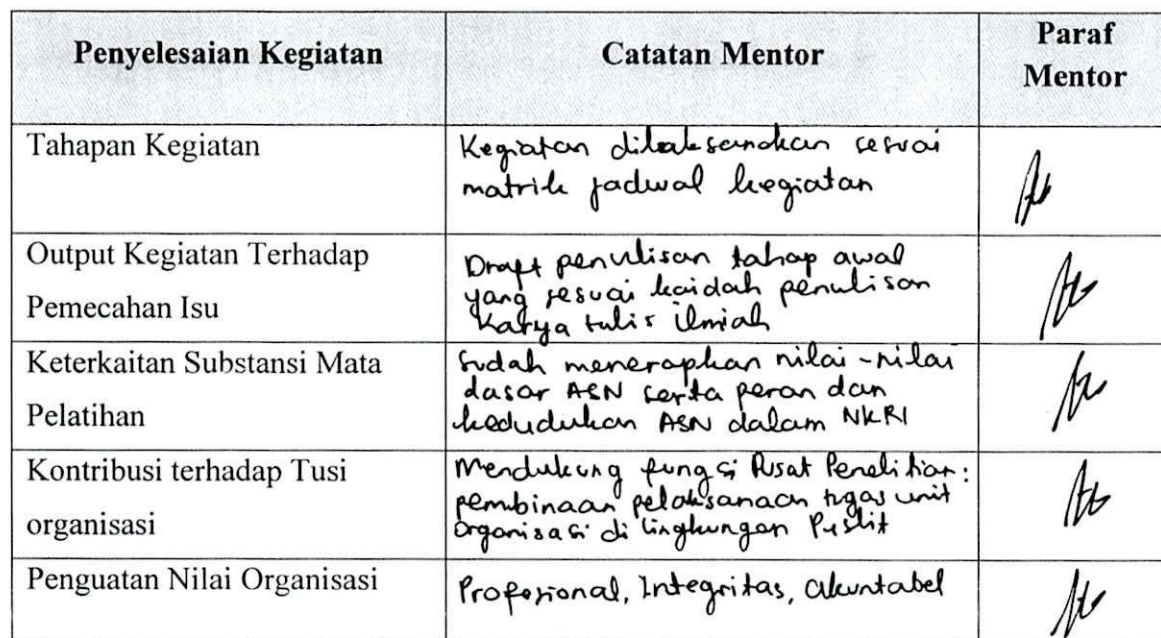 Penyelesaian Kegiatan
Catatan Mentor
Paraf
Mentor
Tahapan Kegiatan
Kegiatan dilaksanakan sesuai
matrik jadwal kegiatan
Output Kegiatan Terhadap
Pemecahan Isu
Draft penulisan tahap awal
yang sesuai kaidah penulisan
Karya tulis ilmiah
Keterkaitan Substansi Mata
Pelatihan
Sudah menerapkan nilai-nilai
dasar ASN serta peran dan
kedudukan ASN dalam NKRI
Kontribusi terhadap Tusi
organisasi
Mendukung fungsi Pusat Penelitian:
pembinaan pelaksanaan tugas unit
organisasi di lingkungan Puslit
Penguatan Nilai Organisasi
Profesional, Integritas, akuntabel